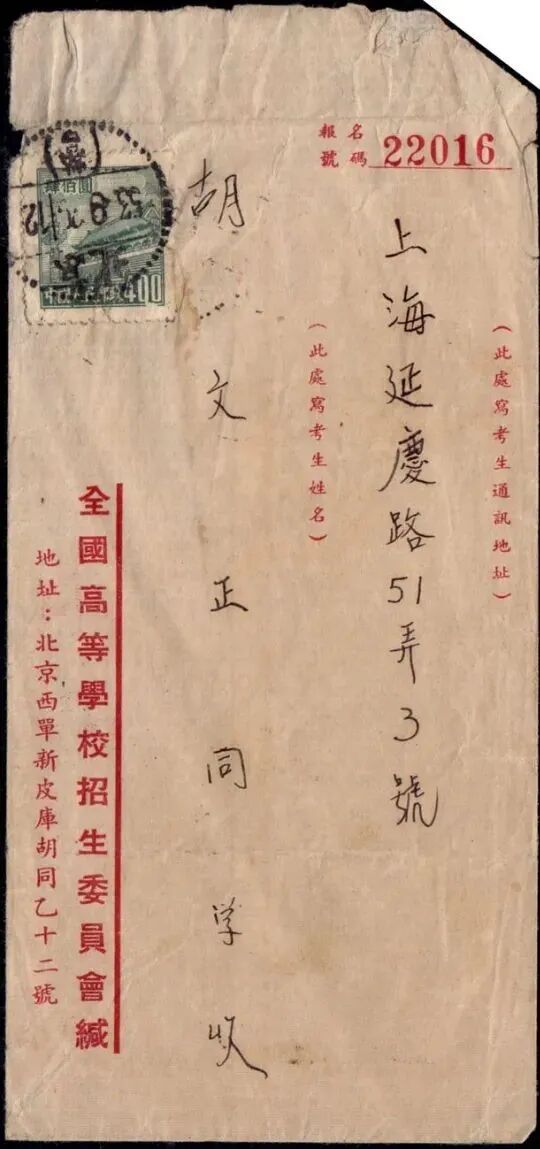 報名
號碼 22016
(此處寫考生通訊地址)
上海延慶路51弄3號
(此處寫考生姓名)
胡文正同学收
全國高等學校招生委員會緘
地址：北京西單新皮庫胡同乙十二號
肆佰圓
400
北京